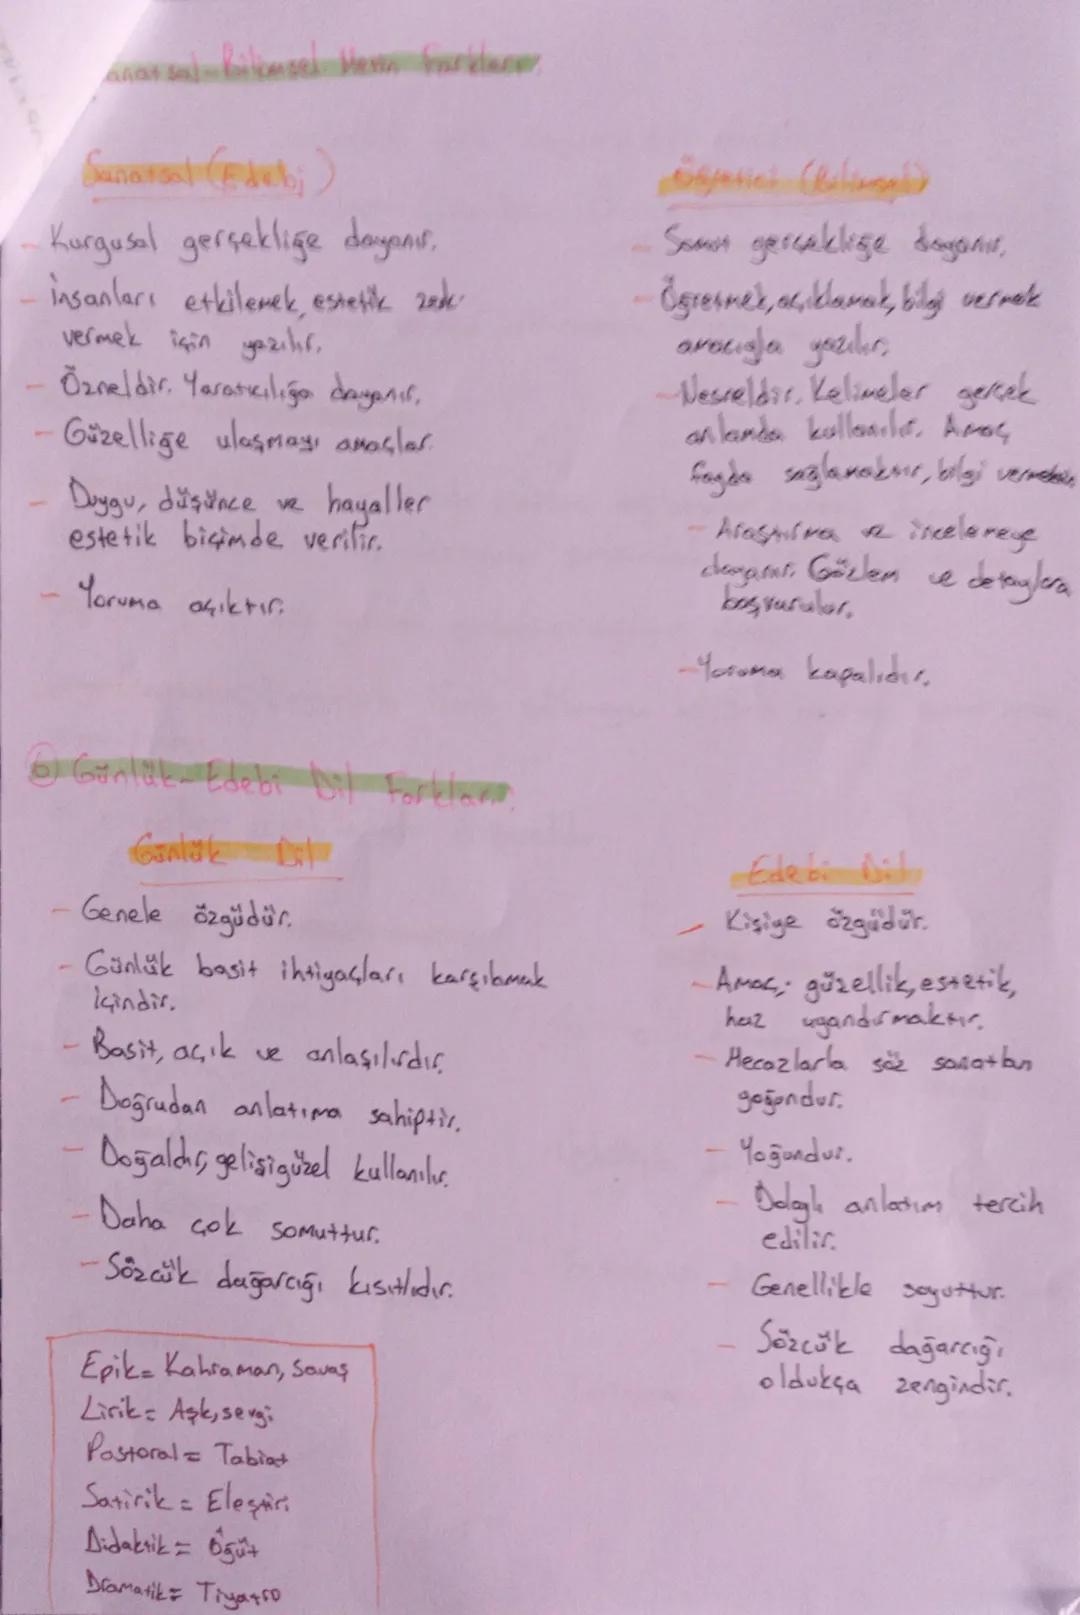 anatsal-Bilimsel Metin Farkları:
Sanatsal (Edebi)
- Kurgusal gerçekliğe dayanır.
- İnsanları etkilemek, estetik zevk
vermek için yazılır.
- Özneldir. Yaratıcılığa dayanır.
- Güzelliğe ulaşmayı amaçlar.
- Duygu, düşünce ve hayaller
estetik biçimde verilir.
- Yoruma açıktır.
Öğretici (Bilimsel)
- Somut gerçekliğe dayanır.
- Öğretmek, açıklamak, bilgi vermek
amacıyla yazılır.
- Nesneldir. Kelimeler gerçek
anlamda kullanılır. Amaç
fayda sağlamaktır, bilgi vermektir.
- Araştırma ve incelemeye
dayanır. Gözlem ve detaylara
başvurulur.
- Yoruma kapalıdır.
6) Günlük-Edebi Dil Farkları:
Günlük Dil
- Genele özgüdür.
- Günlük basit ihtiyaçları karşılamak
içindir.
- Basit, açık ve anlaşılırdır.
- Doğrudan anlatıma sahiptir.
- Doğaldır, gelişigüzel kullanılır.
- Daha çok somuttur.
- Sözcük dağarcığı kısıtlıdır.
Edebi Dil
- Kişiye özgüdür.
- Amaç; güzellik, estetik,
haz uyandırmaktır.
- Mecazlarla söz sanatları
yoğundur.
- Yoğundur.
- Dolaylı anlatım tercih
edilir.
- Genellikle soyuttur.
- Sözcük dağarcığı
oldukça zengindir.
Epik = Kahraman, Savaş
Lirik = Aşk, sevgi
Pastoral = Tabiat
Satirik = Eleştiri
Didaktik = Öğüt
Dramatik = Tiyatro